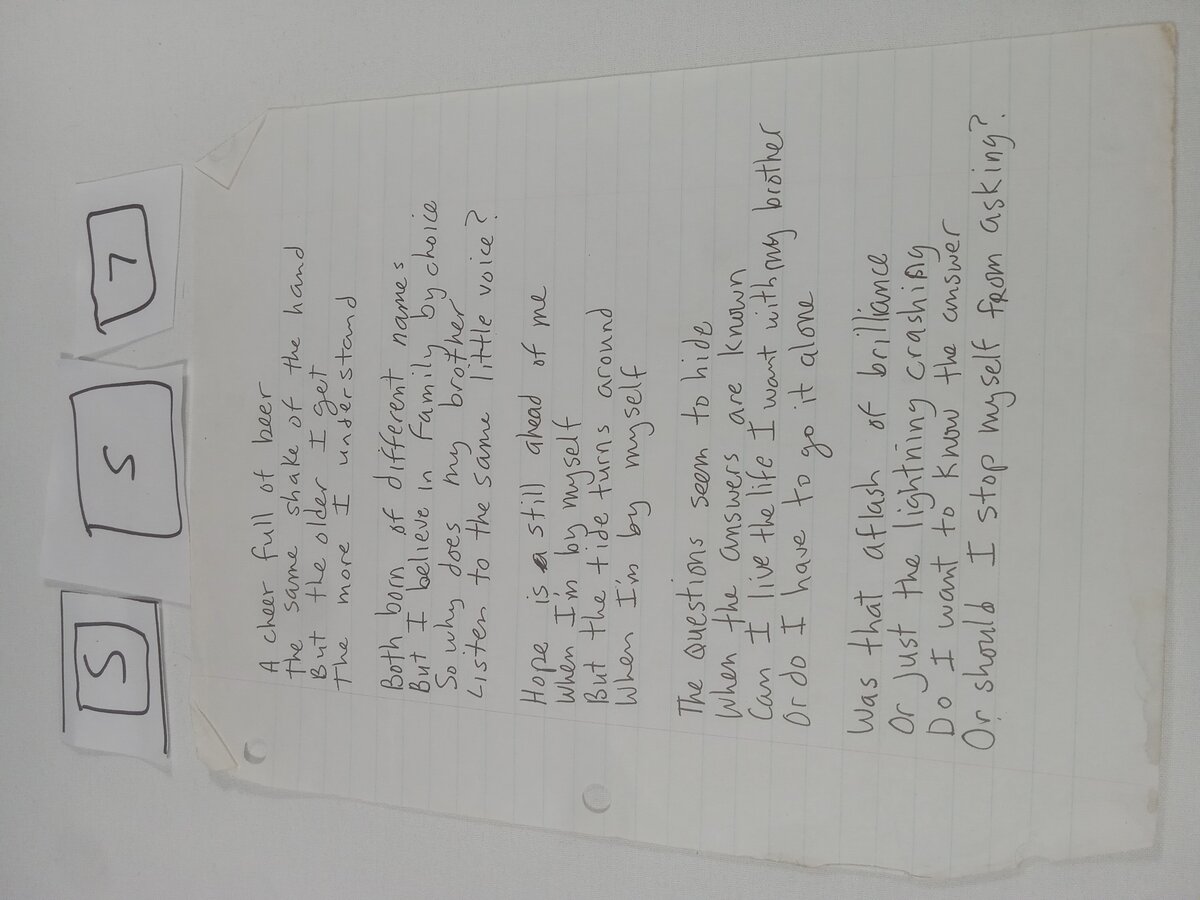 5 5 7
A cheer full of beer
The same shake of the hand
But the older I get
The more I understand
Both born of different names
But I believe in Family by choice
So why does my brother
Listen to the same little voice?
Hope is a still ahead of me
When I'm by myself
But the tide turns around
When I'm by myself
The Questions seem to hide
When the answers are known
Can I live the life I want with my brother
Or do I have to go it alone
Was that a flash of brilliance
Or Just the lightning crashing
Do I want to know the answer
Or should I stop myself from asking?